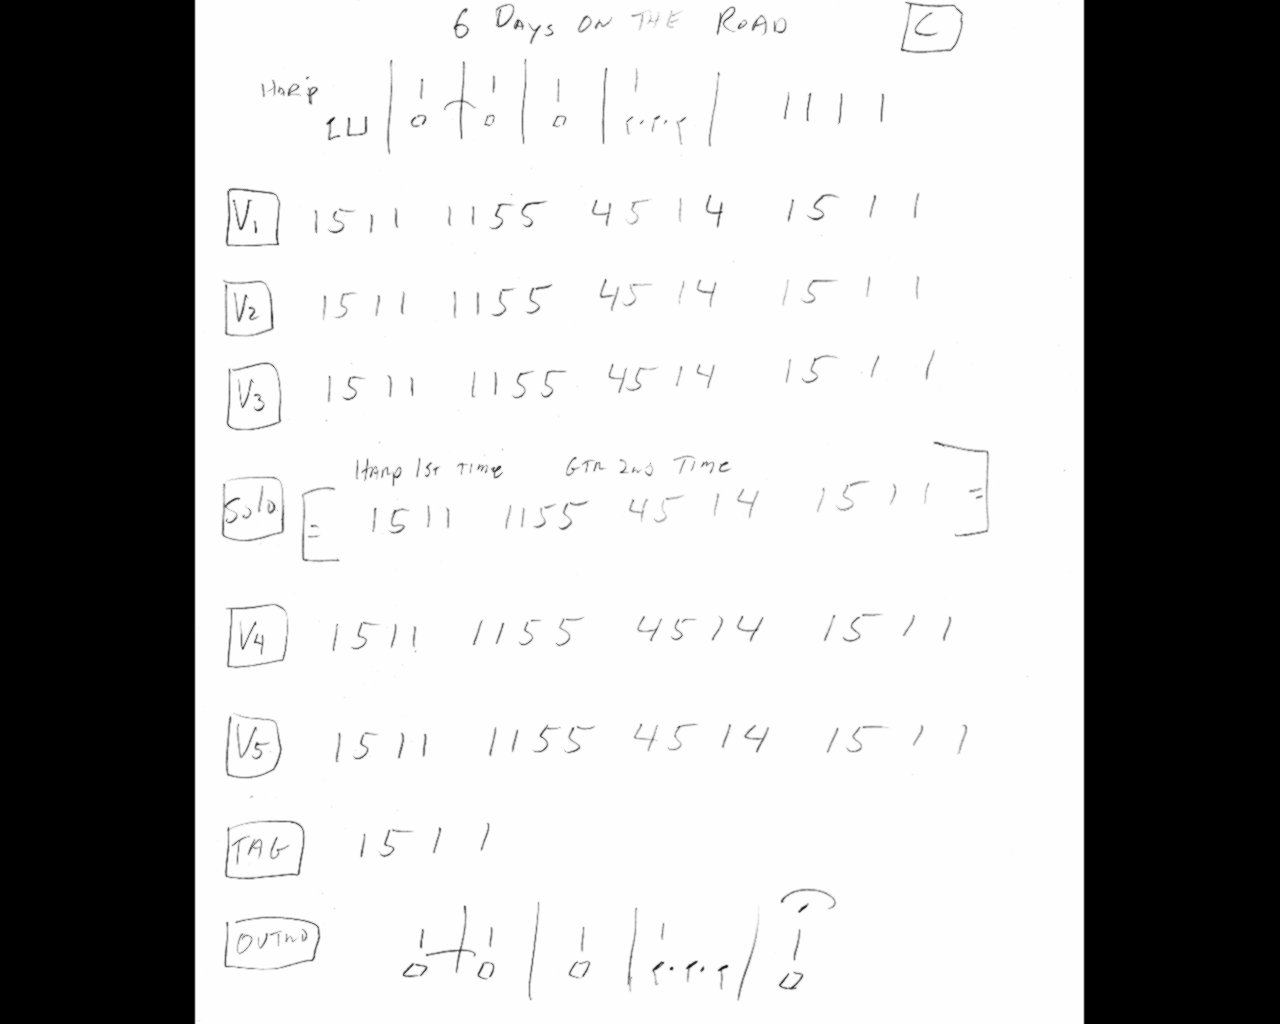 6 DAYS ON THE ROAD C
HARP | 1 | 1 | 1 | 1 | 1 1 1 1
V1 1 5 1 1 1 1 5 5 4 5 1 4 1 5 1 1
V2 1 5 1 1 1 1 5 5 4 5 1 4 1 5 1 1
V3 1 5 1 1 1 1 5 5 4 5 1 4 1 5 1 1
HARP 1ST TIME GTR 2ND TIME
Solo [: 1 5 1 1 1 1 5 5 4 5 1 4 1 5 1 1 :]
V4 1 5 1 1 1 1 5 5 4 5 1 4 1 5 1 1
V5 1 5 1 1 1 1 5 5 4 5 1 4 1 5 1 1
TAG 1 5 1 1
OUTRO 1 | 1 | 1 | 1 | 1